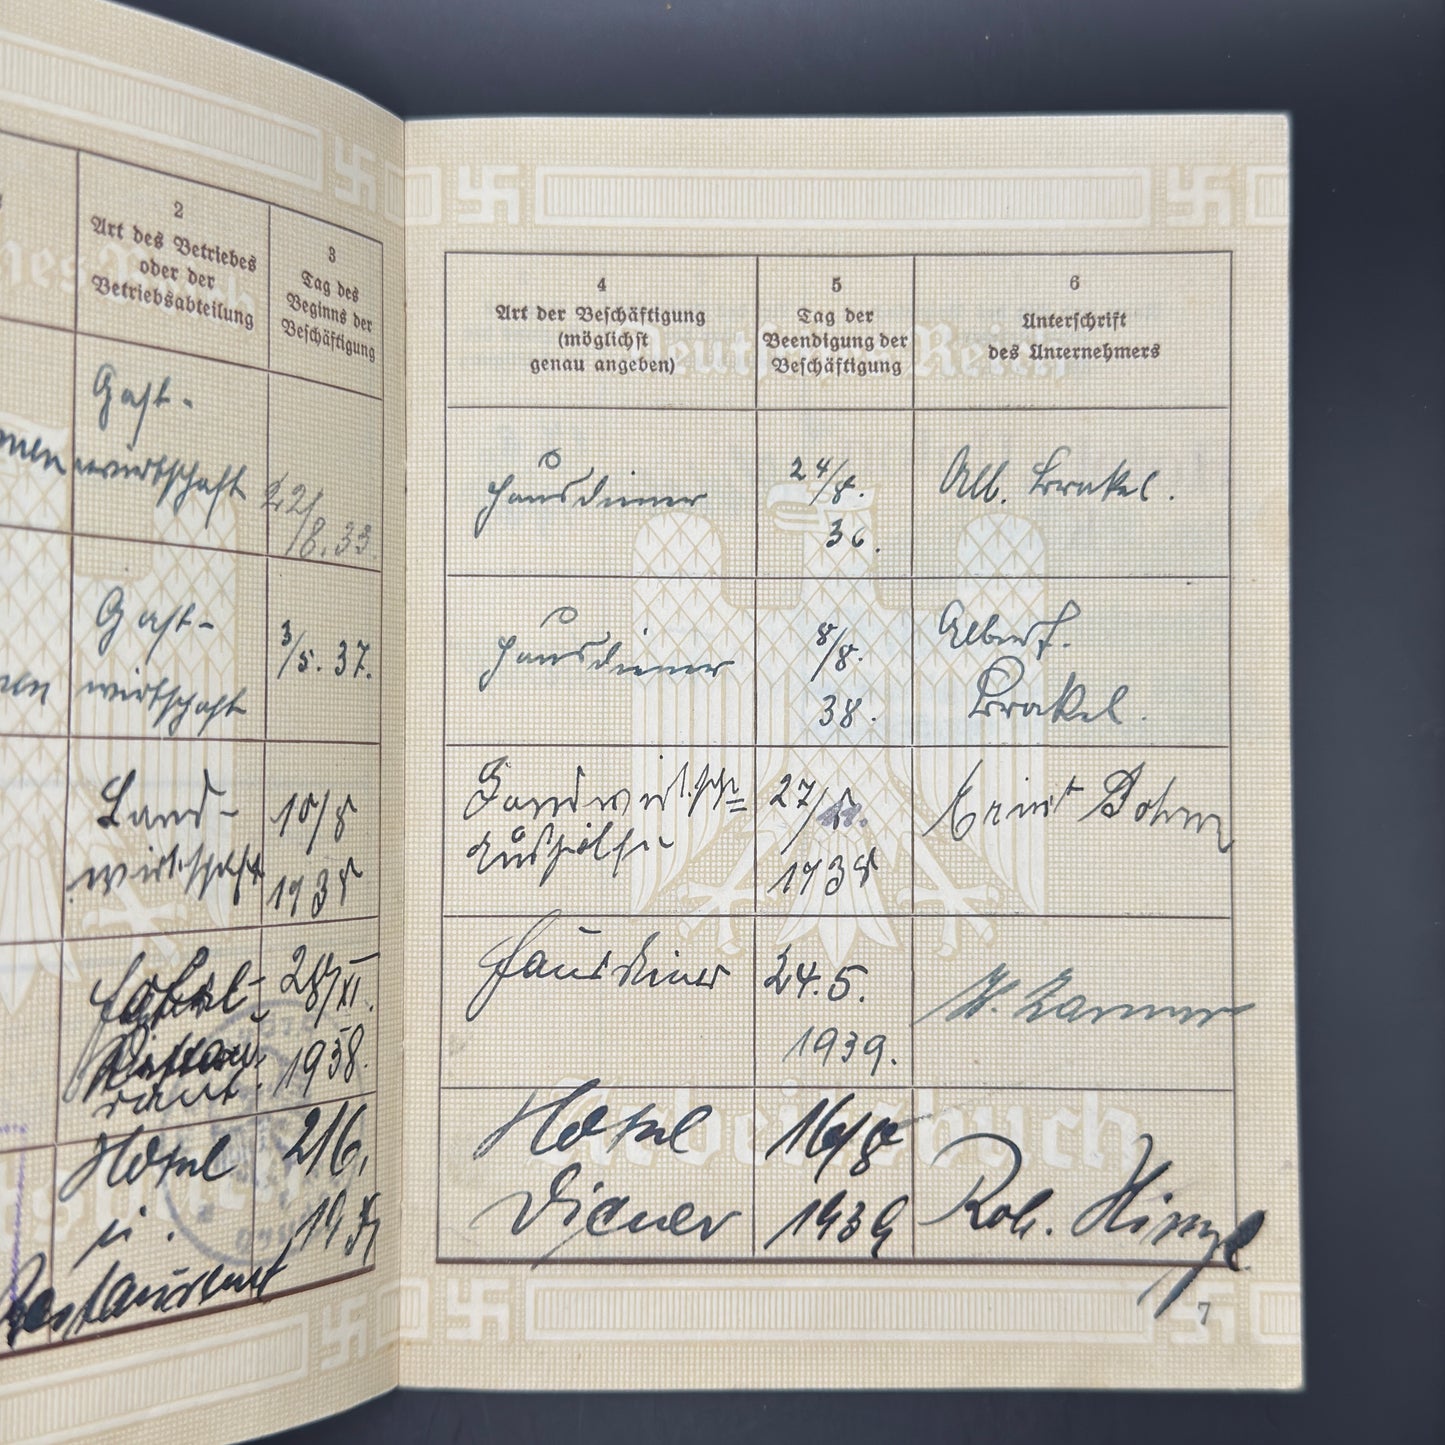 2
Art des Betriebes
oder der
Betriebsabteilung
3
Tag des
Beginns der
Beschäftigung
Gast-
wirtschaft
22/
8.33.
Gast-
wirtschaft
3/5. 37.
Land-
wirtschaft
10/8
1938
28/XI.
1938.
Hotel
u.
Restaurant
2/6.
4
Art der Beschäftigung
(möglichst
genau angeben)
5
Tag der
Beendigung der
Beschäftigung
6
Unterschrift
des Unternehmers
Deutsches Reich
Hausdiener
24/8.
36.
Alb. Brakel.
Hausdiener
8/8.
38.
Albert
Brakel.
Landwirtsch=
Aushilfe
27/
1938
Ernst Bohm
Hausdiener
24.5.
1939.
Arbeitsbuch
Hotel
Diener
16/8
1939
Rob.
7